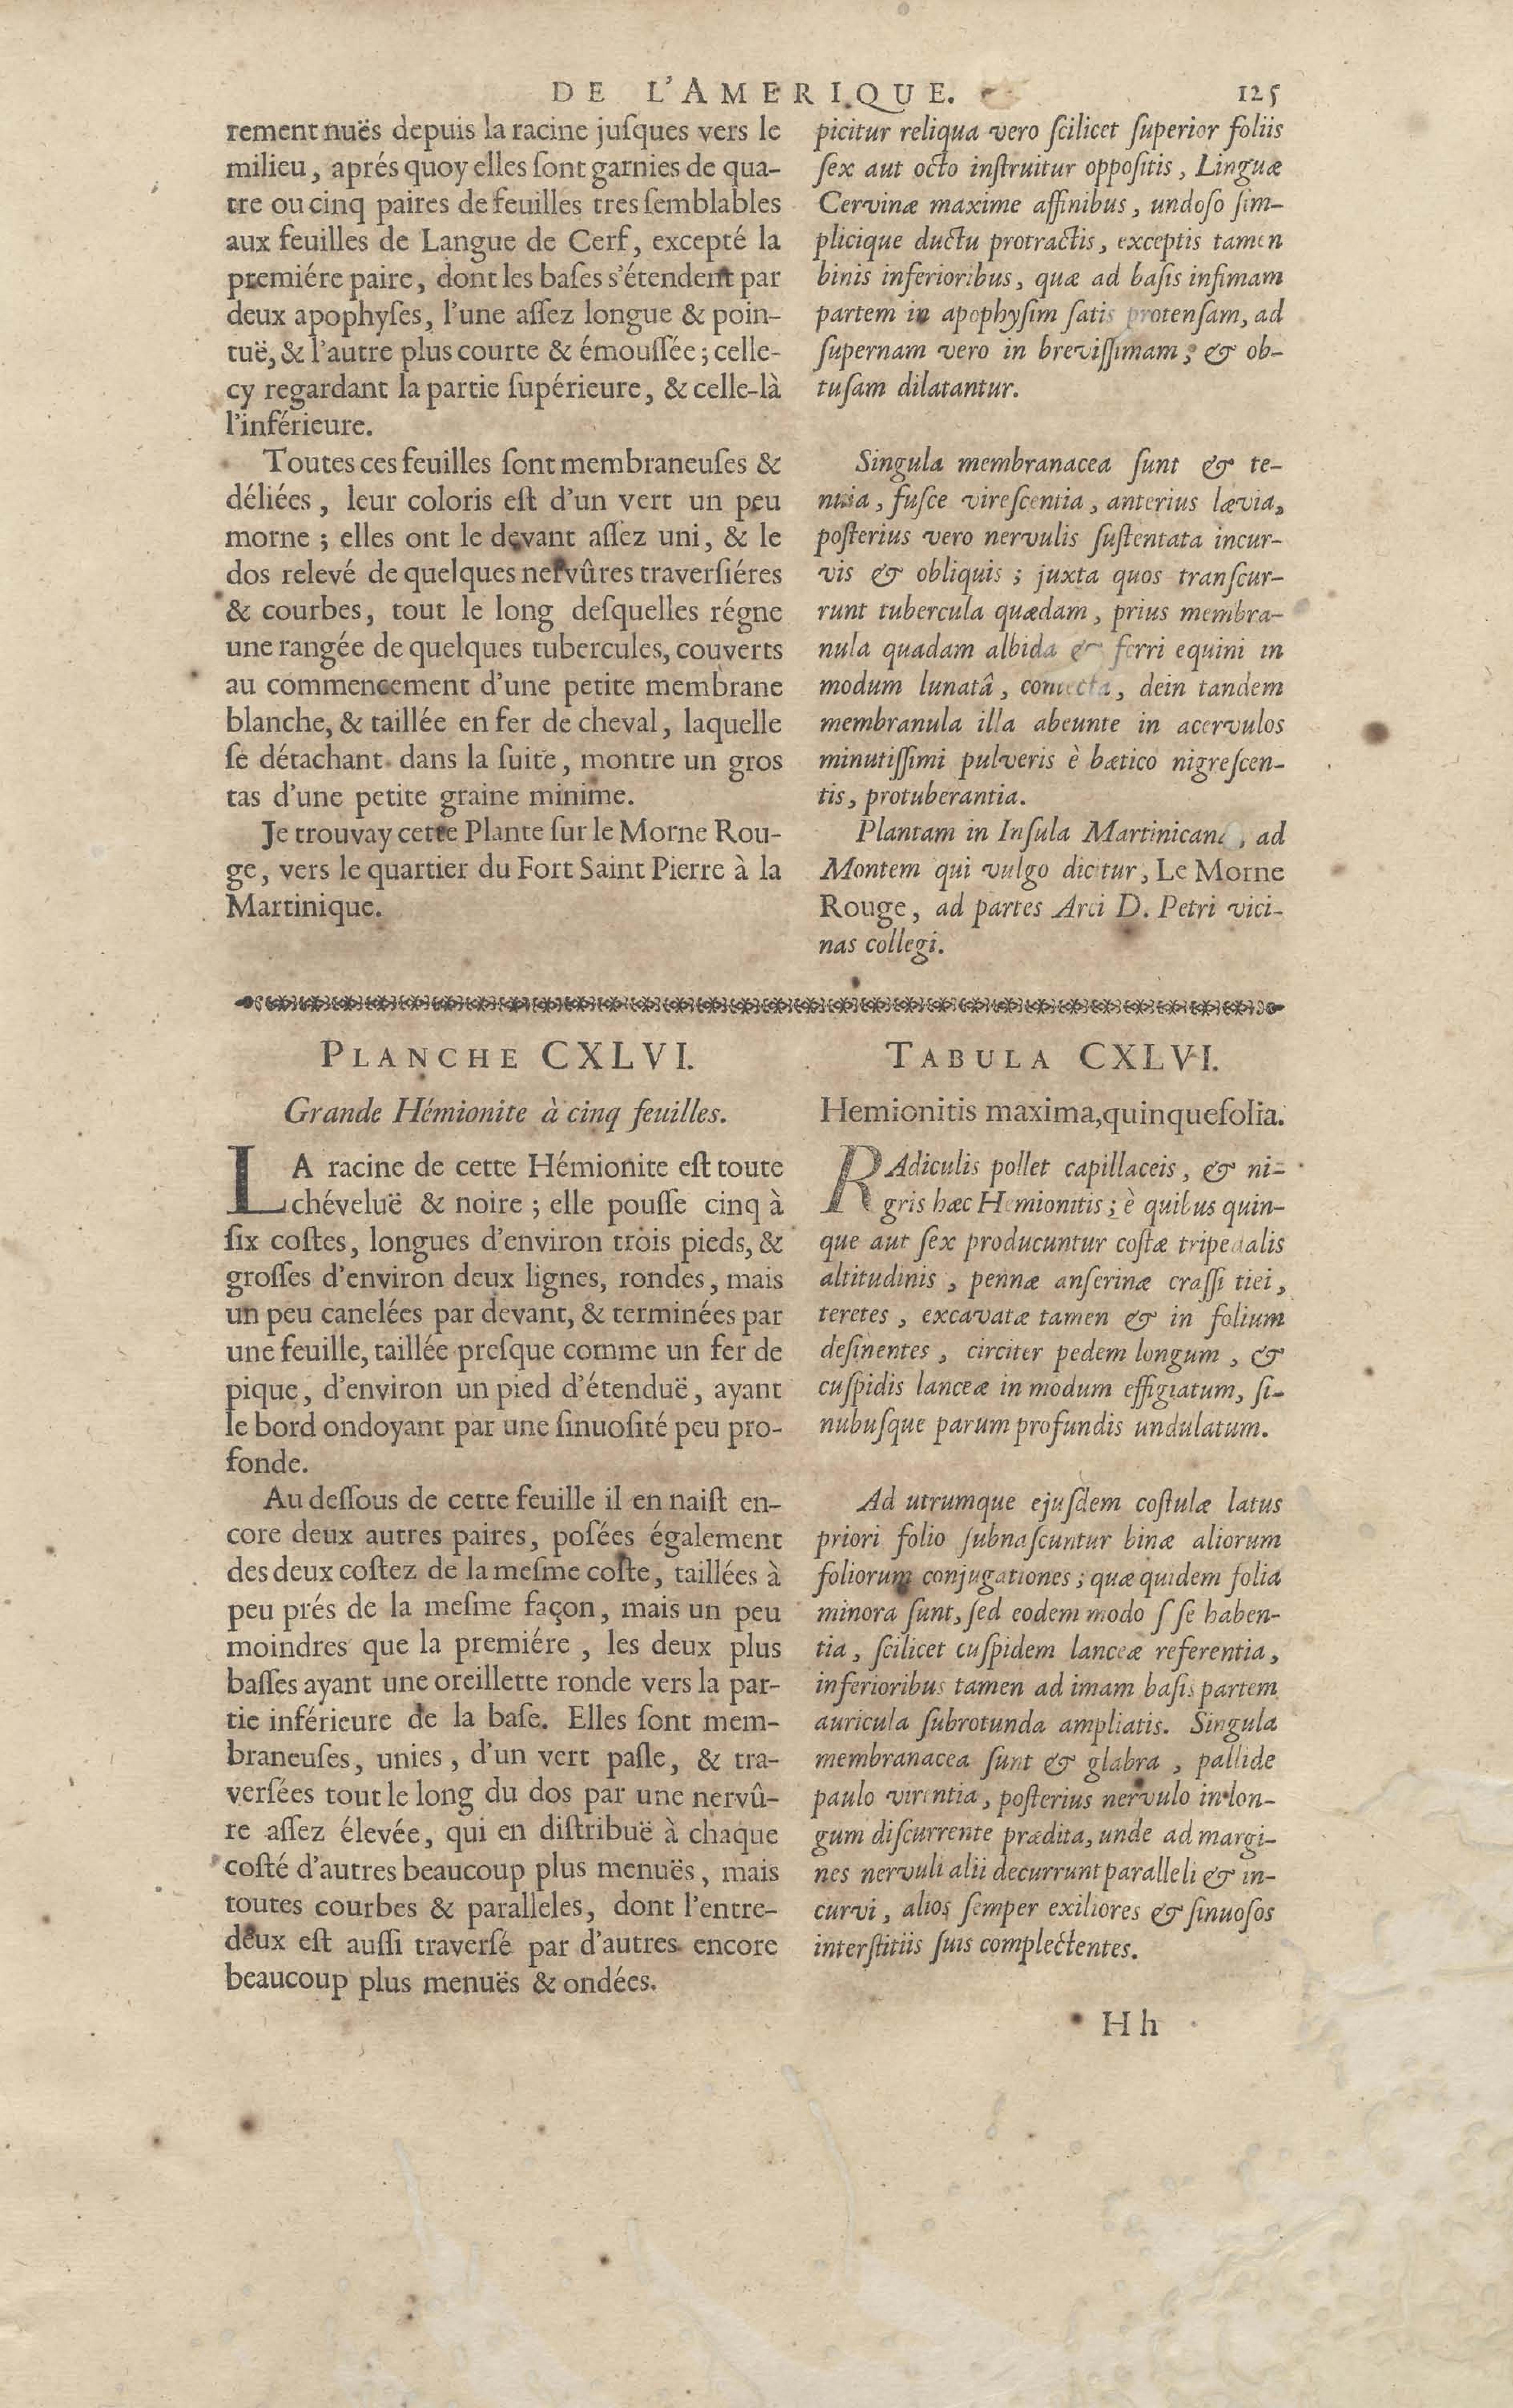 DE L'AMERIQUE. 125
rement nuës depuis la racine juſques vers le
milieu, aprés quoy elles ſont garnies de qua-
tre ou cinq paires de feuilles tres ſemblables
aux feuilles de Langue de Cerf, excepté la
premiére paire, dont les baſes s'étendent par
deux apophyſes, l'une aſſez longue & poin-
tuë, & l'autre plus courte & émouſſée; celle-
cy regardant la partie ſupérieure, & celle-là
l'inférieure.
Toutes ces feuilles ſont membraneuſes &
déliées, leur coloris eſt d'un vert un peu
morne; elles ont le devant aſſez uni, & le
dos relevé de quelques nervûres traverſiéres
& courbes, tout le long deſquelles régne
une rangée de quelques tubercules, couverts
au commencement d'une petite membrane
blanche, & taillée en fer de cheval, laquelle
ſe détachant dans la ſuite, montre un gros
tas d'une petite graine minime.
Je trouvay cette Plante ſur le Morne Rou-
ge, vers le quartier du Fort Saint Pierre à la
Martinique.
picitur reliqua vero ſcilicet ſuperior foliis
ſex aut octo inſtruitur oppoſitis, Linguæ
Cervinæ maxime affinibus, undoſo ſim-
plicique ductu protractis, exceptis tamen
binis inferioribus, quæ ad baſis infimam
partem in apophyſim ſatis protenſam, ad
ſupernam vero in breviſſimam, & ob-
tuſam dilatantur.
Singula membranacea ſunt & te-
nuia, fuſce vireſcentia, anterius lævia,
poſterius vero nervulis ſuſtentata incur-
vis & obliquis; juxta quos tranſcur-
runt tubercula quædam, prius membra-
nula quadam albida & ferri equini in
modum lunatâ, contecta, dein tandem
membranula illa abeunte in acervulos
minutiſſimi pulveris è bætico nigreſcen-
tis, protuberantia.
Plantam in Inſula Martinicana, ad
Montem qui vulgo dicitur, Le Morne
Rouge, ad partes Arci D. Petri vici-
nas collegi.
PLANCHE CXLVI.
Grande Hémionite à cinq feuilles.
LA racine de cette Hémionite eſt toute
chéveluë & noire; elle pouſſe cinq à
ſix coſtes, longues d'environ trois pieds, &
groſſes d'environ deux lignes, rondes, mais
un peu canelées par devant, & terminées par
une feuille, taillée preſque comme un fer de
pique, d'environ un pied d'étenduë, ayant
le bord ondoyant par une ſinuoſité peu pro-
fonde.
Au deſſous de cette feuille il en naiſt en-
core deux autres paires, poſées également
des deux coſtez de la meſme coſte, taillées à
peu prés de la meſme façon, mais un peu
moindres que la premiére, les deux plus
baſſes ayant une oreillette ronde vers la par-
tie inférieure de la baſe. Elles ſont mem-
braneuſes, unies, d'un vert paſle, & tra-
verſées tout le long du dos par une nervû-
re aſſez élevée, qui en diſtribuë à chaque
coſté d'autres beaucoup plus menuës, mais
toutes courbes & paralleles, dont l'entre-
deux eſt auſſi traverſé par d'autres encore
beaucoup plus menuës & ondées.
TABULA CXLVI.
Hemionitis maxima, quinquefolia.
RAdiculis pollet capillaceis, & ni-
gris hæc Hemionitis; è quibus quin-
que aut ſex producuntur coſtæ tripedalis
altitudinis, pennæ anſerinæ craſſitiei,
teretes, excavatæ tamen & in folium
deſinentes, circiter pedem longum, &
cuſpidis lanceæ in modum effigiatum, ſi-
nubuſque parum profundis undulatum.
Ad utrumque ejuſdem coſtulæ latus
priori folio ſubnaſcuntur binæ aliorum
foliorum conjugationes; quæ quidem folia
minora ſunt, ſed eodem modo ſeſe haben-
tia, ſcilicet cuſpidem lanceæ referentia,
inferioribus tamen ad imam baſis partem
auricula ſubrotunda ampliatis. Singula
membranacea ſunt & glabra, pallide
paulo virentia, poſterius nervulo in lon-
gum diſcurrente prædita, unde ad margi-
nes nervuli alii decurrunt paralleli & in-
curvi, alios ſemper exiliores & ſinuoſos
interſtitiis ſuis complectentes.
Hh